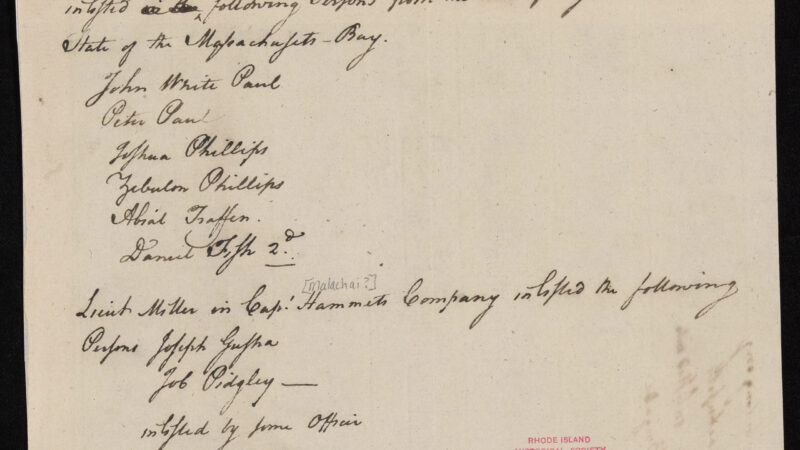 inlisted following Persons from the
State of the Massachusets-Bay.
John White Paul
Peter Paul
Joshua Phillips
Zebulon Phillips
Abial Traffen.
Daniel Fish 2.d
[Malachai?]
Lieut Miller in Capt. Hammets Company inlisted the following
Persons Joseph Gusha
Job Pidgley —
inlisted by some Officer
RHODE ISLAND
HISTORICAL SOCIETY